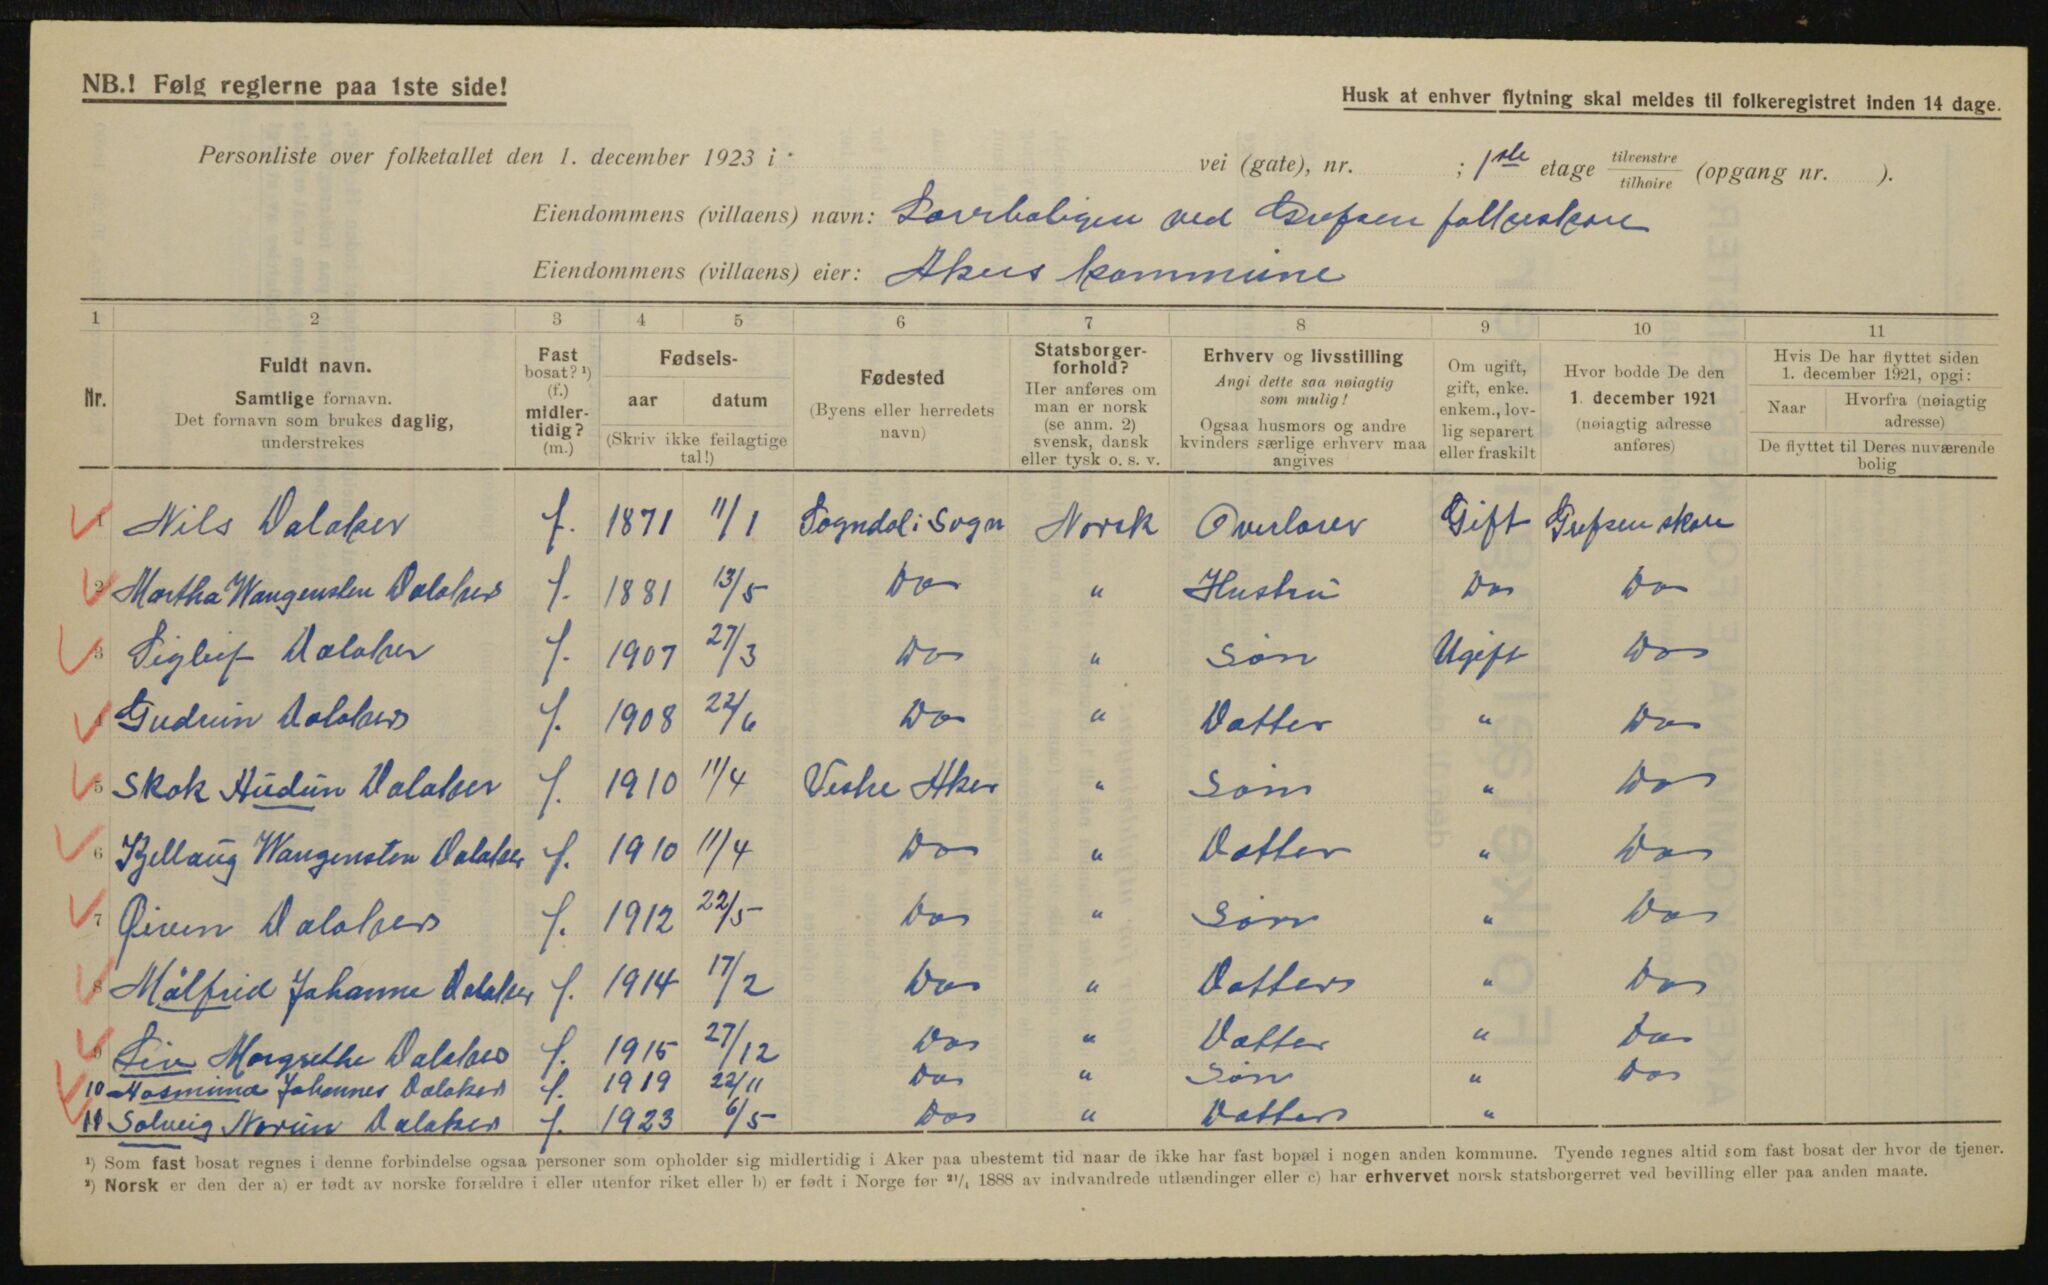 NB.! Følg reglerne paa 1ste side!
Husk at enhver flytning skal meldes til folkeregistret inden 14 dage.
Personliste over folketallet den 1. december 1923 i vei (gate), nr. ; 1ste etage tilvenstre tilhøire (opgang nr. ).
Eiendommens (villaens) navn: Lærerboligen ved Grefsen folkeskole
Eiendommens (villaens) eier: Akers kommune
1 2 3 4 5 6 7 8 9 10 11
Nr. Fuldt navn. Samtlige fornavn. Det fornavn som brukes daglig, understrekes
Fast bosat? ¹) (f.) midlertidig? (m.)
Fødsels- aar datum (Skriv ikke feilagtige tal!)
Fødested (Byens eller herredets navn)
Statsborgerforhold? Her anføres om man er norsk (se anm. 2) svensk, dansk eller tysk o. s. v.
Erhverv og livsstilling Angi dette saa nøiagtig som mulig! Ogsaa husmors og andre kvinders særlige erhverv maa angives
Om ugift, gift, enke. enkem., lovlig separert eller fraskilt
Hvor bodde De den 1. december 1921 (nøiagtig adresse anføres)
Hvis De har flyttet siden 1. december 1921, opgi: Naar Hvorfra (nøiagtig adresse) De flyttet til Deres nuværende bolig
1 Nils Dalaker f. 1871 11/1 Sogndal i Sogn Norsk Overlærer Gift Grefsen skole
2 Martha Wangensten Dalaker f. 1881 13/5 Do " Hustru Do Do
3 Sigleif Dalaker f. 1907 27/3 Do " Søn Ugift Do
4 Gudrun Dalaker f. 1908 22/6 Do " Datter " Do
5 Skak Audun Dalaker f. 1910 11/4 Vestre Aker " Søn " Do
6 Kjellaug Wangensten Dalaker f. 1910 11/4 Do " Datter " Do
7 Øiven Dalaker f. 1912 22/5 Do " Søn " Do
8 Målfrid Johanne Dalaker f. 1914 17/2 Do " Datter " Do
9 Liv Margrethe Dalaker f. 1915 27/12 Do " Datter " Do
10 Aasmund Johannes Dalaker f. 1919 22/11 Do " Søn " Do
11 Solveig Norun Dalaker f. 1923 6/5 Do " Datter "
¹) Som fast bosat regnes i denne forbindelse ogsaa personer som opholder sig midlertidig i Aker paa ubestemt tid naar de ikke har fast bopæl i nogen anden kommune. Tyende regnes altid som fast bosat der hvor de tjener.
²) Norsk er den der a) er født av norske forældre i eller utenfor riket eller b) er født i Norge før 21/4 1888 av indvandrede utlændinger eller c) har erhvervet norsk statsborgerret ved bevilling eller paa anden maate.